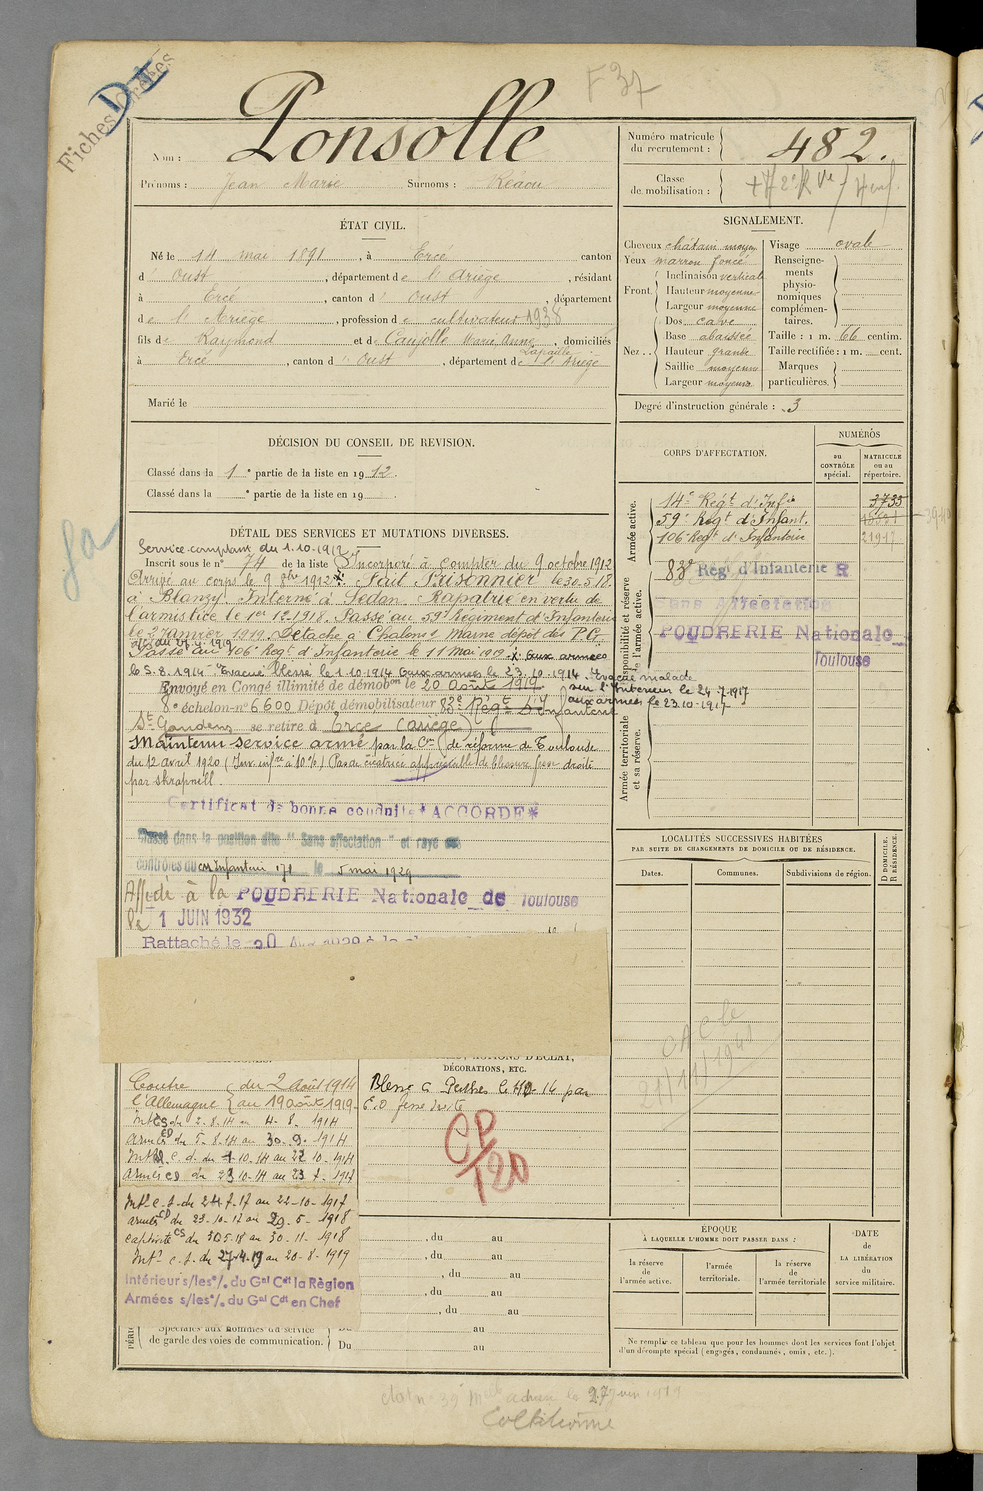 Fiches
F 37
Nom : Ponsolle
Prénoms : Jean Marie Surnoms : Réaou
Numéro matricule du recrutement : 482.
Classe de mobilisation :
ÉTAT CIVIL.
Né le 14 mai 1891, à Ercé canton
d' Oust, département de l'Ariège, résidant
à Ercé, canton d' Oust, département
de l'Ariège, profession de cultivateur 1938
fils de Raymond et de Caujolle Marie Anne, domiciliés
à Ercé, canton d' Oust, département de l'Ariège
Marié le
SIGNALEMENT.
Cheveux châtain moyen
Yeux marron foncé
Front. Inclinaison verticale
Hauteur moyenne
Largeur moyenne
Nez .. Dos cave
Base abaissée
Hauteur grande
Saillie moyenne
Largeur moyenne
Visage ovale
Renseignements physionomiques complémentaires.
Taille : 1 m. 66 centim.
Taille rectifiée : 1 m. cent.
Marques particulières.
Degré d'instruction générale : 3
DÉCISION DU CONSEIL DE REVISION.
Classé dans la 1e partie de la liste en 1912.
Classé dans la e partie de la liste en 19
CORPS D'AFFECTATION.
NUMÉROS
au CONTRÔLE spécial.
MATRICULE ou au répertoire.
Armée active.
14e Regt d'Infie 3735
59e Regt d'Infant.
106 Regt d'Infanterie 21917
Disponibilité et réserve de l'armée active.
83e Regt d'Infanterie R
Sans Affectation
POUDRERIE Nationale
Toulouse
Armée territoriale et sa réserve.
DÉTAIL DES SERVICES ET MUTATIONS DIVERSES.
Service comptant du 1.10.1912
Inscrit sous le n° 74 de la liste Incorporé à compter du 9 octobre 1912
Arrivé au corps le 9 8bre 1912. Fait Prisonnier le 30.5.18
à Blanzy Interné à Sedan Rapatrié en vertu de
l'armistice le 1er 12.1918. Passé au 59e Régiment d'Infanterie
le 2 janvier 1919. Détaché à Chalons s Marne dépôt des P.G.
Passé au 106e Regt d'Infanterie le 11 Mai 1919. aux armées
le 5.8.1914 Evacué blessé le 1.10.1914 aux armées le 23.10.1914. Evacué malade
sur l'Intérieur le 24.7.1917
aux armées le 23.10.1917
Envoyé en Congé illimité de démobon le 20 Août 1919
8e échelon n° 6600 Dépôt démobilisateur 83e Regt d'Infanterie
St Gaudens se retire à Ercé (Ariège)
Maintenu service armé par la Con de réforme de Toulouse
du 12 avril 1920 (Inv. infre à 10%) Pas de cicatrice appréciable de blessure fesse droite
par shrapnell.
Certificat de bonne conduite "ACCORDÉ"
Classé dans la position dite "Sans affectation" et rayé des
contrôles du Infanterie 171 le 5 mai 1929
Affecté à la POUDRERIE Nationale de Toulouse
le 1 JUIN 1932
Rattaché le 20
LOCALITÉS SUCCESSIVES HABITÉES
PAR SUITE DE CHANGEMENTS DE DOMICILE OU DE RÉSIDENCE.
Dates. Communes. Subdivisions de région.
D DOMICILE. R RÉSIDENCE.
DÉCORATIONS, ETC.
Contre l'Allemagne du 2 août 1914
au 19 août 1919
Blessé à Perthes le
fesse droite
CP/120
Int CS du 2-8-14 au 4-8-1914
armées CD du 5-8-14 au 30-9-1914
Int c.d. du 1-10-14 au 22-10-1914
armées CD du 23-10-14 au 23-7-1917
Intr c.s. du 24-7-17 au 22-10-1917
armées CD du 23-10-17 au 29-5-1918
captivité CS du 30.5.18 au 30-11-1918
Intr c.s. du 27-4-19 au 20-8-1919
Intérieur s/les°/. du Gal Cdt la Région
Armées s/les°/. du Gal Cdt en Chef
Spéciales aux hommes du service
de garde des voies de communication.
Du au
, du au
, du au
, du au
, du au
, du au
au
Du au
ÉPOQUE
À LAQUELLE L'HOMME DOIT PASSER DANS :
la réserve de l'armée active.
l'armée territoriale.
la réserve de l'armée territoriale
DATE de LA LIBÉRATION du service militaire.
Ne remplir ce tableau que pour les hommes dont les services font l'objet
d'un décompte spécial (engagés, condamnés, omis, etc.).